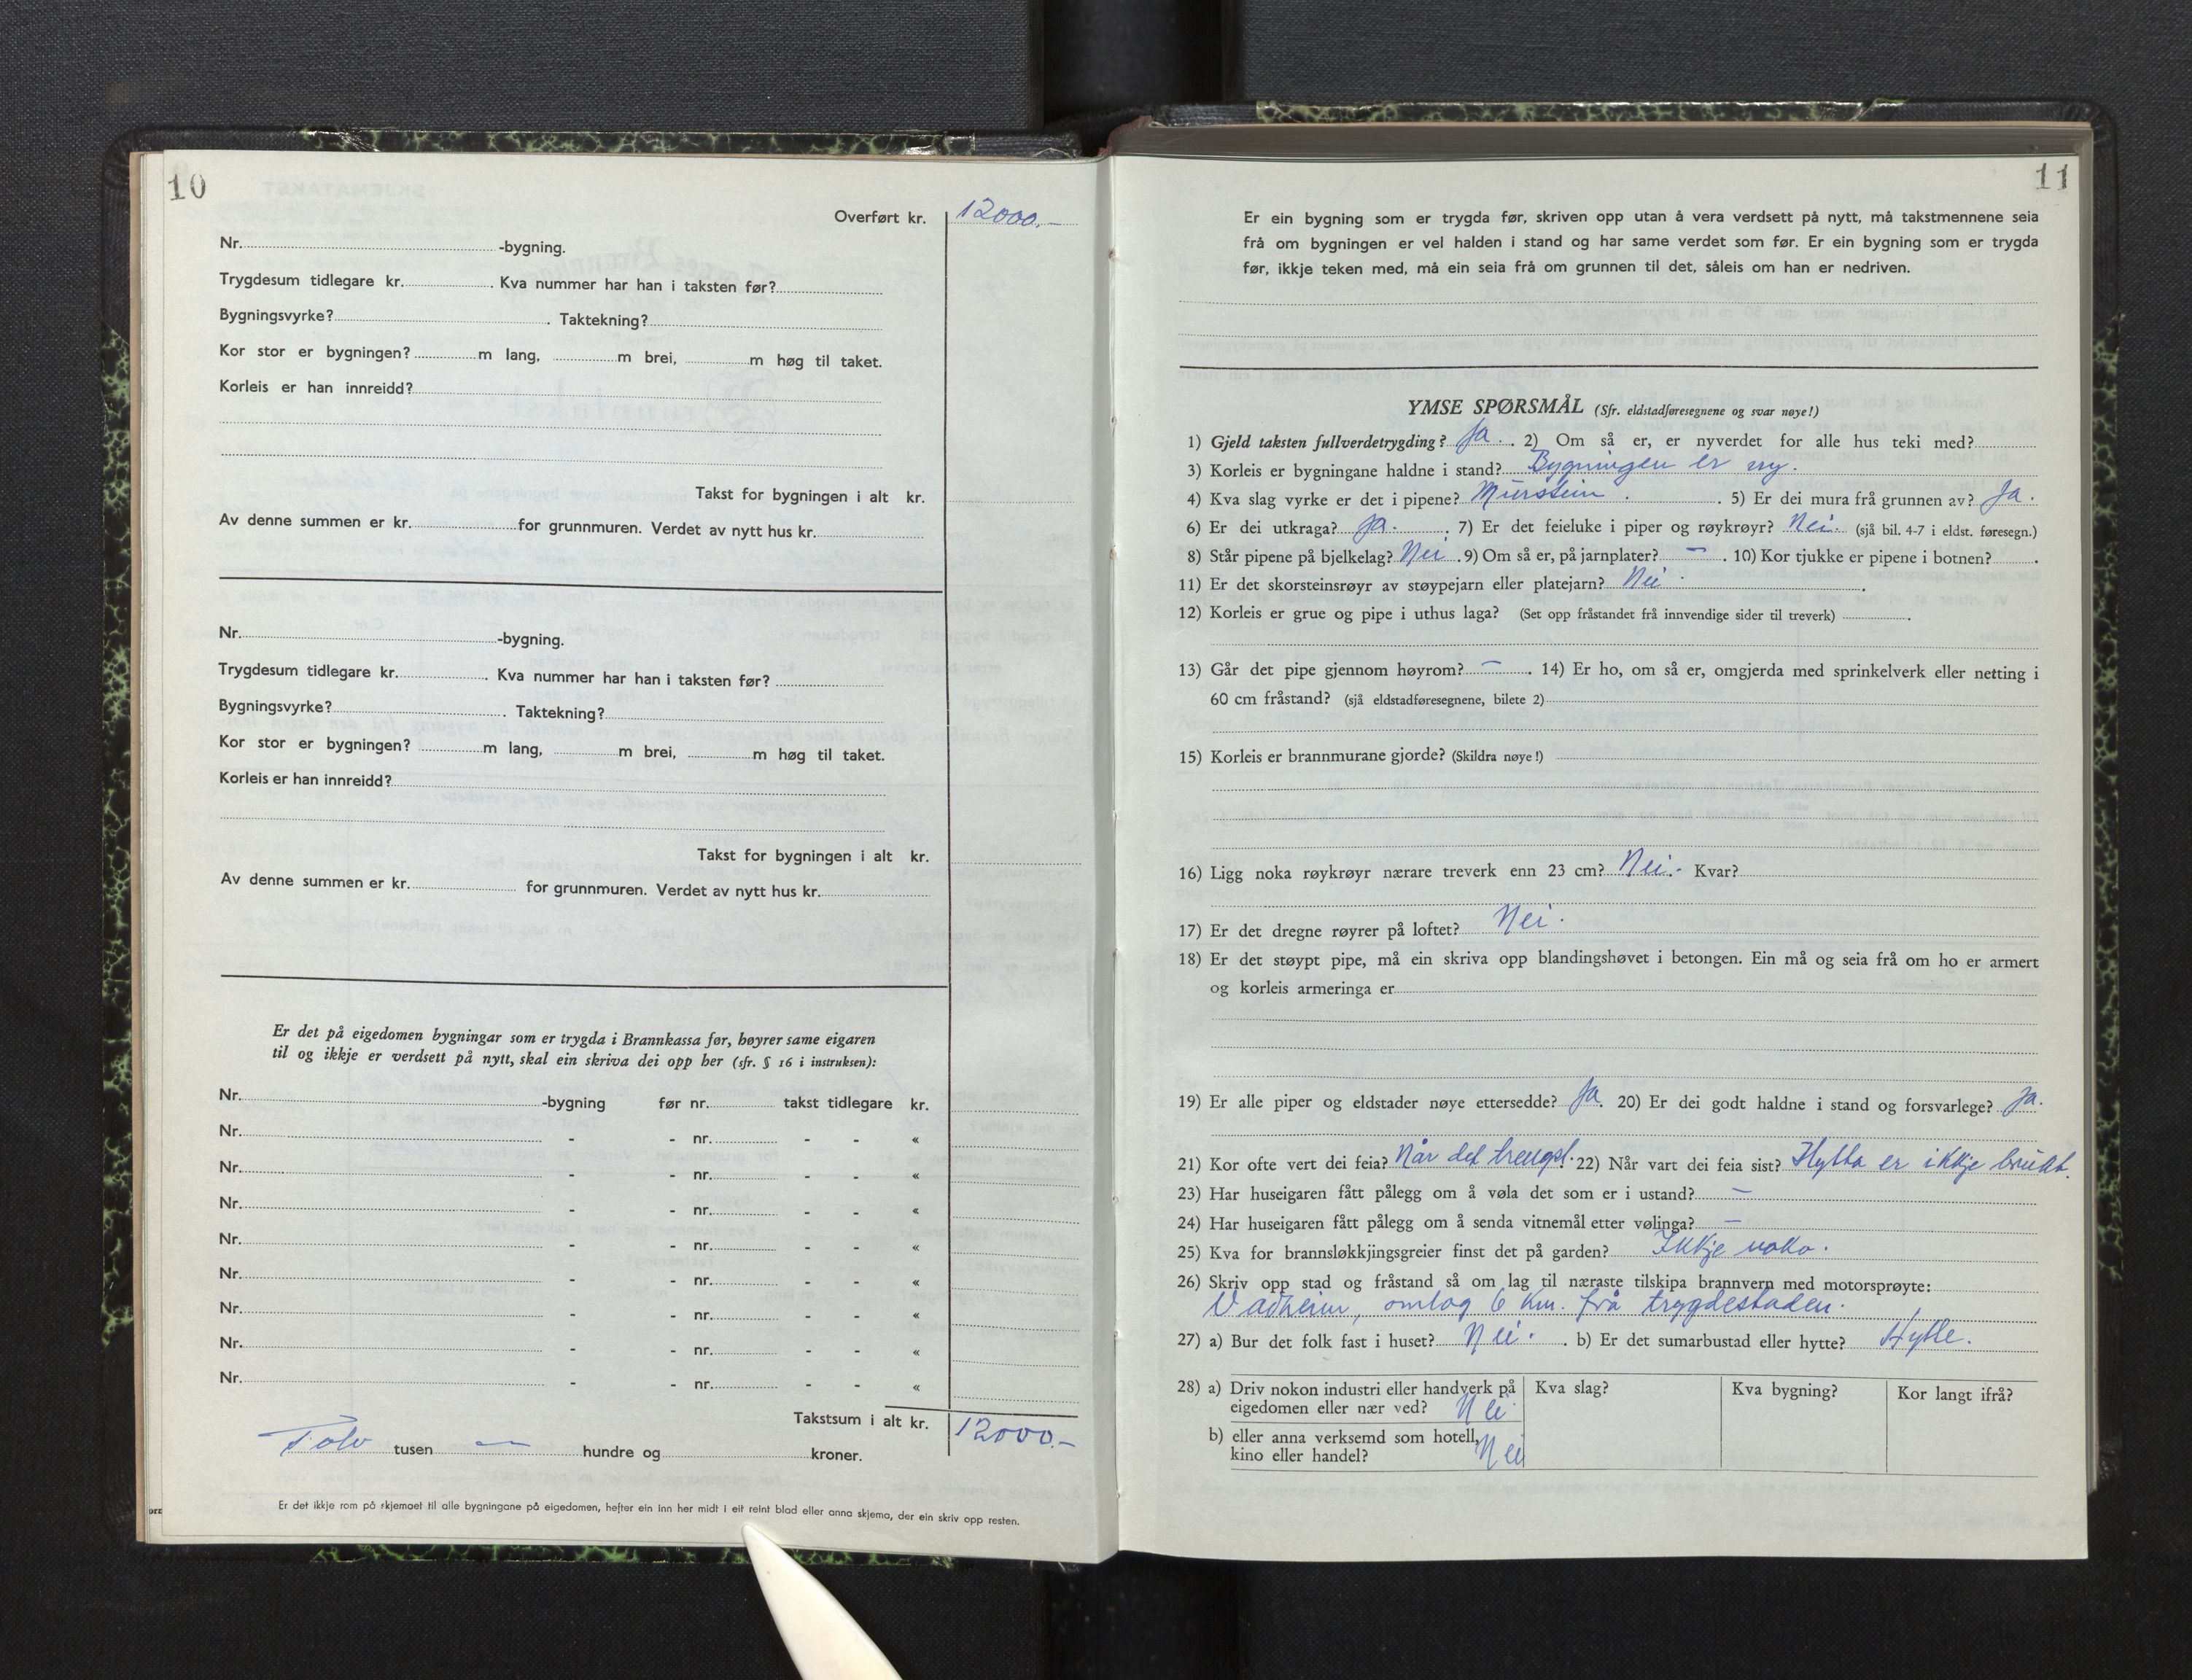 10
Overført kr. 12000.-
Nr. -bygning.
Trygdesum tidlegare kr. . Kva nummer har han i taksten før?
Bygningsvyrke? . Taktekning?
Kor stor er bygningen? m lang, m brei, m høg til taket.
Korleis er han innreidd?
Takst for bygningen i alt kr.
Av denne summen er kr. for grunnmuren. Verdet av nytt hus kr.
Nr. -bygning.
Trygdesum tidlegare kr. . Kva nummer har han i taksten før?
Bygningsvyrke? . Taktekning?
Kor stor er bygningen? m lang, m brei, m høg til taket.
Korleis er han innreidd?
Takst for bygningen i alt kr.
Av denne summen er kr. for grunnmuren. Verdet av nytt hus kr.
Er det på eigedomen bygningar som er trygda i Brannkassa før, høyrer same eigaren
til og ikkje er verdsett på nytt, skal ein skriva dei opp her (sfr. § 16 i instruksen):
Nr. -bygning før nr. takst tidlegare kr.
Nr. - - nr. - - «
Nr. - - nr. - - «
Nr. - - nr. - - «
Nr. - - nr. - - «
Nr. - - nr. - - «
Nr. - - nr. - - «
Nr. - - nr. - - «
Nr. - - nr. - - «
Takstsum i alt kr. 12000.-
Tolv tusen — hundre og kroner.
Er det ikkje rom på skjemaet til alle bygningane på eigedomen, hefter ein inn her midt i eit reint blad eller anna skjema, der ein skriv opp resten.
11
Er ein bygning som er trygda før, skriven opp utan å vera verdsett på nytt, må takstmennene seia
frå om bygningen er vel halden i stand og har same verdet som før. Er ein bygning som er trygda
før, ikkje teken med, må ein seia frå om grunnen til det, såleis om han er nedriven.
YMSE SPØRSMÅL (Sfr. eldstadføresegnene og svar nøye!)
1) Gjeld taksten fullverdetrygding? Ja. . 2) Om så er, er nyverdet for alle hus teki med?
3) Korleis er bygningane haldne i stand? Bygningen er ny.
4) Kva slag vyrke er det i pipene? Murstein . . 5) Er dei mura frå grunnen av? Ja.
6) Er dei utkraga? Ja. . 7) Er det feieluke i piper og røykrøyr? Nei. (sjå bil. 4-7 i eldst. føresegn.)
8) Står pipene på bjelkelag? Nei . 9) Om så er, på jarnplater? — . 10) Kor tjukke er pipene i botnen? .
11) Er det skorsteinsrøyr av støypejarn eller platejarn? Nei. .
12) Korleis er grue og pipe i uthus laga? (Set opp fråstandet frå innvendige sider til treverk) .
13) Går det pipe gjennom høyrom? — . 14) Er ho, om så er, omgjerda med sprinkelverk eller netting i
60 cm fråstand? (sjå eldstadføresegnene, bilete 2)
15) Korleis er brannmurane gjorde? (Skildra nøye!)
16) Ligg noka røykrøyr nærare treverk enn 23 cm? Nei.- Kvar?
17) Er det dregne røyrer på loftet? Nei.
18) Er det støypt pipe, må ein skriva opp blandingshøvet i betongen. Ein må og seia frå om ho er armert
og korleis armeringa er
19) Er alle piper og eldstader nøye ettersedde? Ja. 20) Er dei godt haldne i stand og forsvarlege? Ja.
21) Kor ofte vert dei feia? Når det trengst. 22) Når vart dei feia sist? Hytta er ikkje brukt.
23) Har huseigaren fått pålegg om å vøla det som er i ustand? —
24) Har huseigaren fått pålegg om å senda vitnemål etter vølinga? —
25) Kva for brannsløkkjingsgreier finst det på garden? Ikkje noko.
26) Skriv opp stad og fråstand så om lag til næraste tilskipa brannvern med motorsprøyte:
Vadheim, omlag 6 Km. frå trygdestaden.
27) a) Bur det folk fast i huset? Nei. . b) Er det sumarbustad eller hytte? Hytte.
28) a) Driv nokon industri eller handverk på Kva slag? Kva bygning? Kor langt ifrå?
eigedomen eller nær ved? Nei.
b) eller anna verksemd som hotell,
kino eller handel? Nei